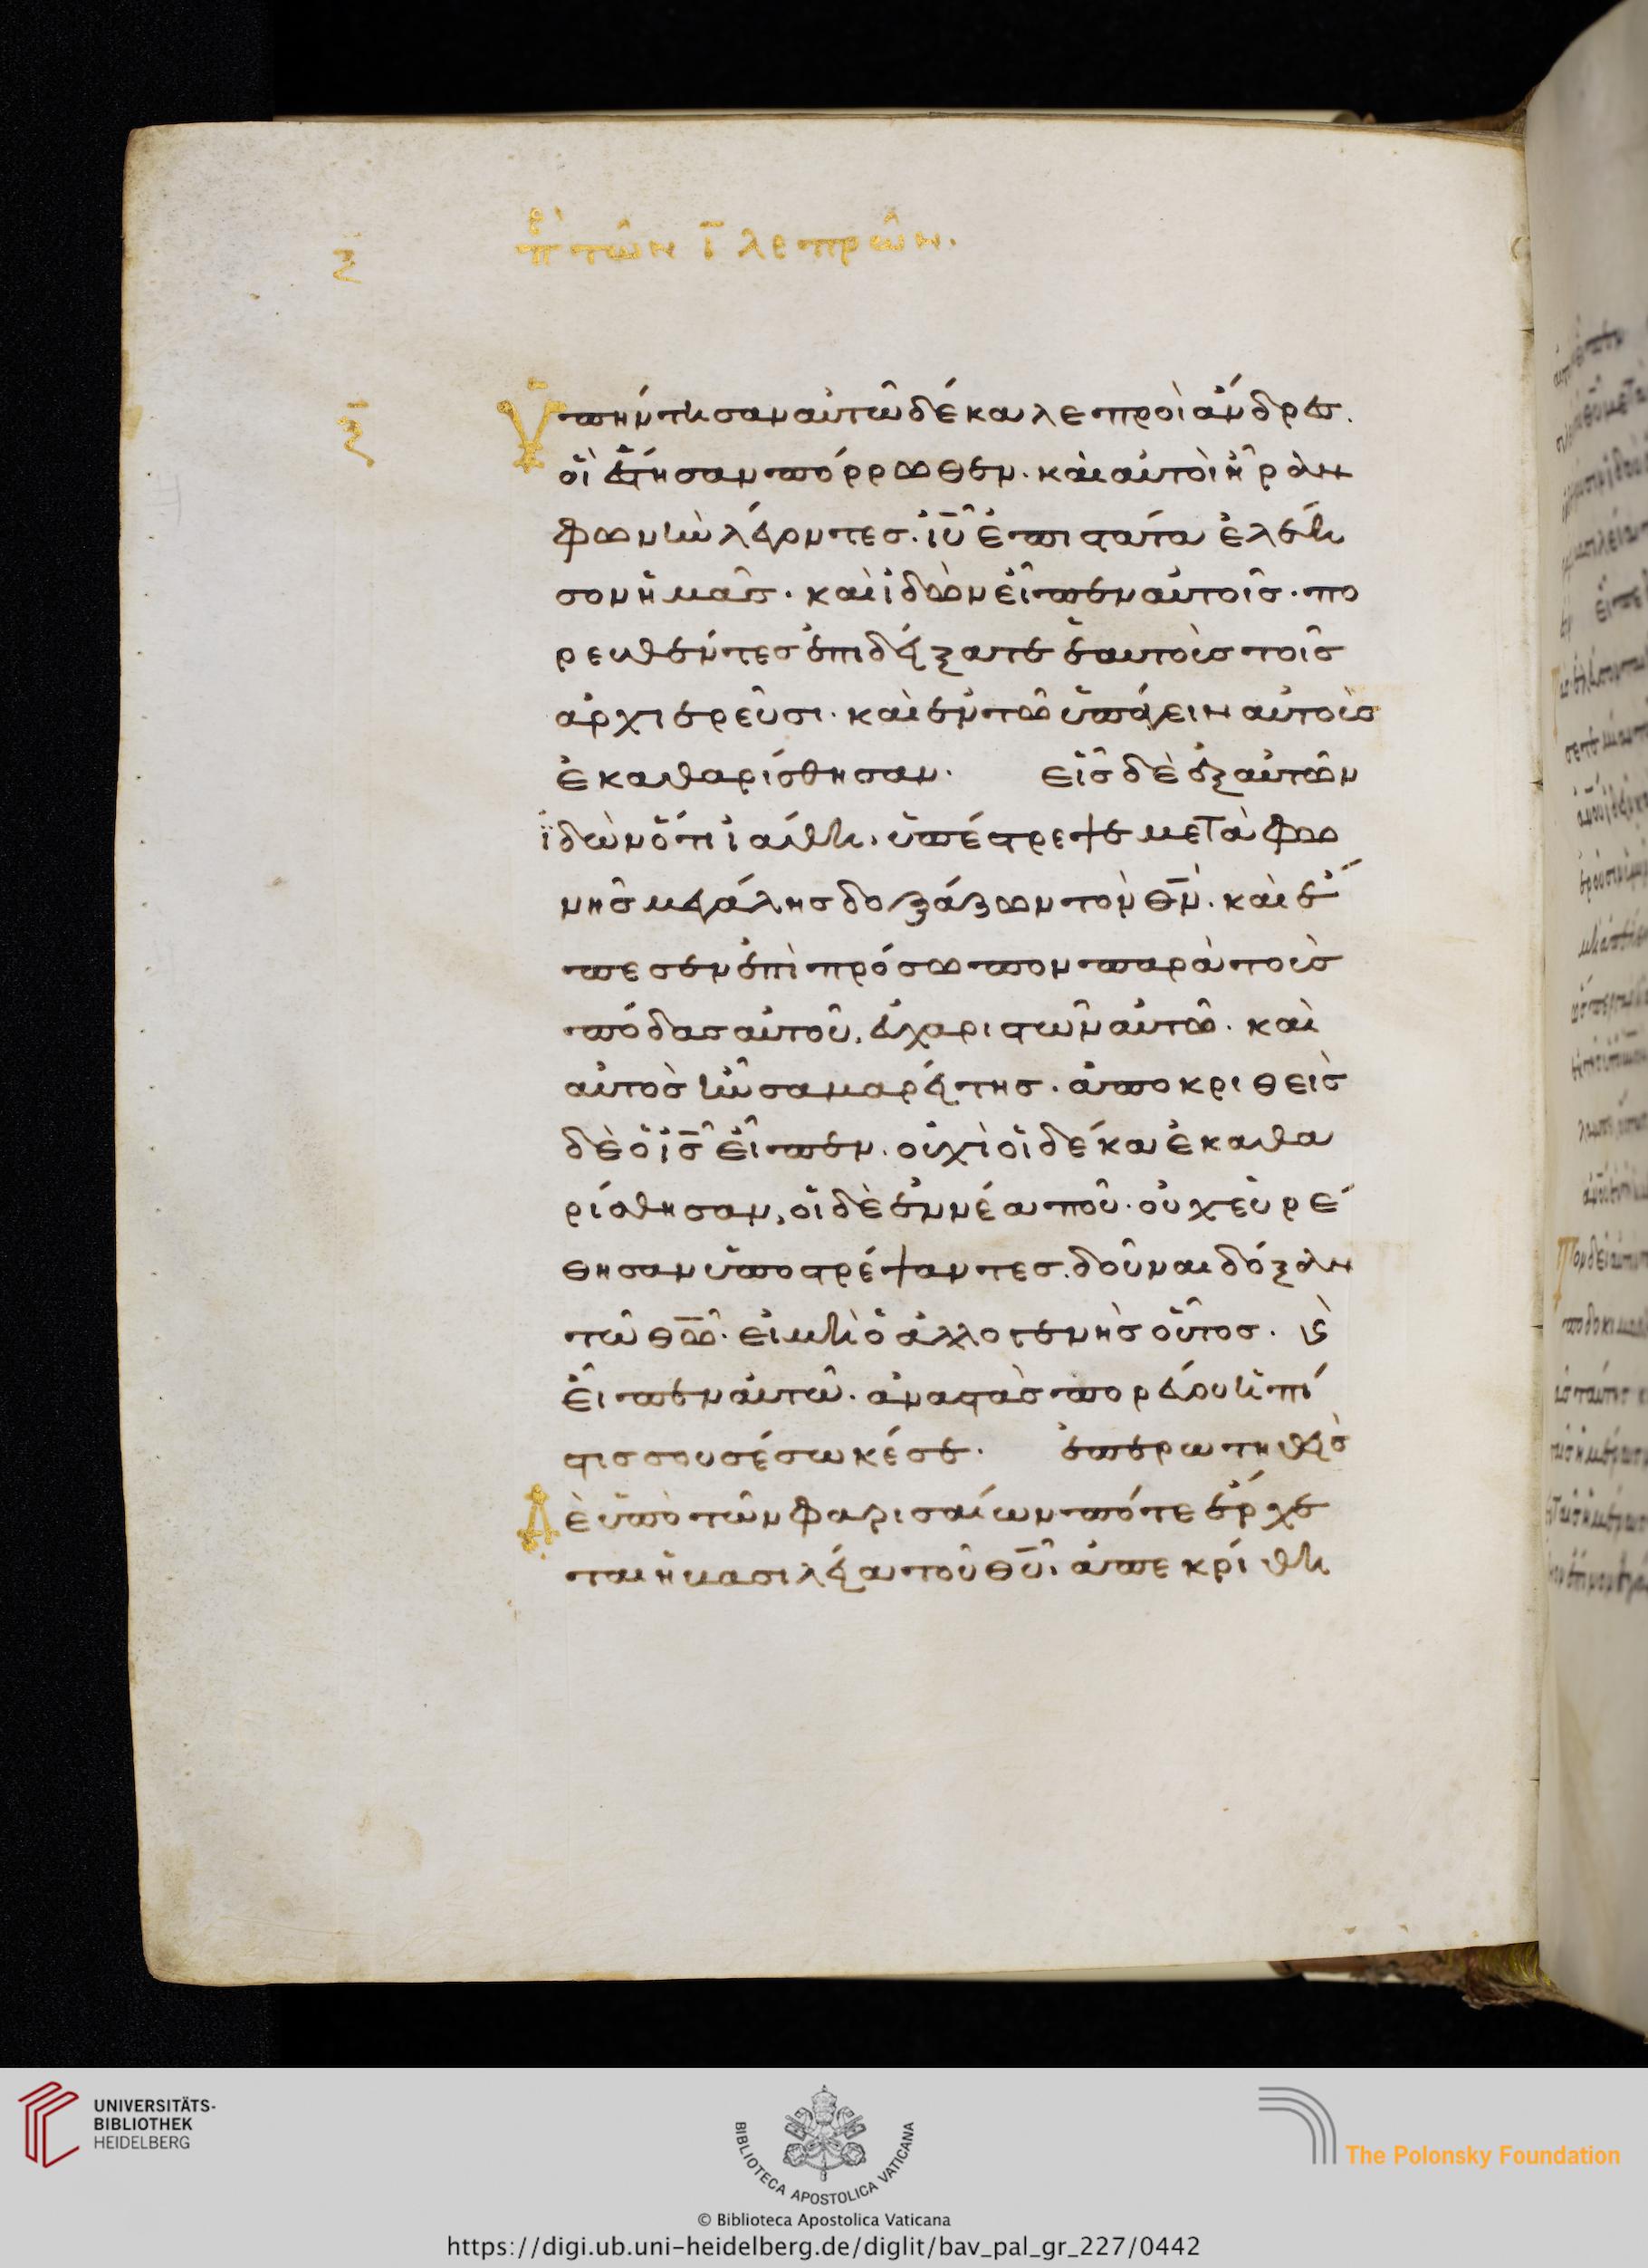 πε τῶν ι λεπρῶν.
ξ
ξ
Ὑπήντησαν αὐτῶ δέκα λεπροὶ ἄνδρες.
οἳ ἔστησαν πόρρωθεν. καὶ αὐτοὶ ἦραν
φωνὴν λέγοντες. ιῦ ἐπιστάτα ἐλέη
σον ἡμᾶς. καὶ ἰδὼν εἶπεν αὐτοῖς. πο
ρευθέντες ἐπιδείξατε ἑαυτοὺς τοῖς
ἀρχιερεῦσι. καὶ ἐν τῶ ὑπάγειν αὐτοὺς
ἐκαθαρίσθησαν. εἷς δὲ ἐξ αὐτῶν
ἰδὼν ὅτι ἰάθη, ὑπέστρεψε μετὰ φω
νῆς μεγάλης δοξάζων τὸν θν. καὶ ἔ
πεσεν ἐπὶ πρόσωπον παρὰ τοὺς
πόδας αὐτοῦ, εὐχαριστῶν αὐτῶ. καὶ
αὐτὸς ἦν σαμαρείτης. ἀποκριθεὶς
δὲ ὁ ις εἶπεν. οὐχὶ οἱ δέκα ἐκαθα
ρίσθησαν, οἱ δὲ ἐννέα ποῦ. οὐχ εὑρέ
θησαν ὑποστρέψαντες. δοῦναι δόξαν
τῶ θω. εἰ μὴ ὁ ἀλλογενὴς οὗτος. ϗ
εἶπεν αὐτῶ. ἀναστὰς πορεύου ἡ πί
στις σου σέσωκέ σε. ἐπερωτηθεὶς
Δὲ ὑπὸ τῶν φαρισαίων πότε ἔρχε
ται ἡ βασιλεία τοῦ θυ. ἀπεκρίθη
UNIVERSITÄTS-
BIBLIOTHEK
HEIDELBERG
BIBLIOTECA APOSTOLICA VATICANA
The Polonsky Foundation
© Biblioteca Apostolica Vaticana
https://digi.ub.uni-heidelberg.de/diglit/bav_pal_gr_227/0442